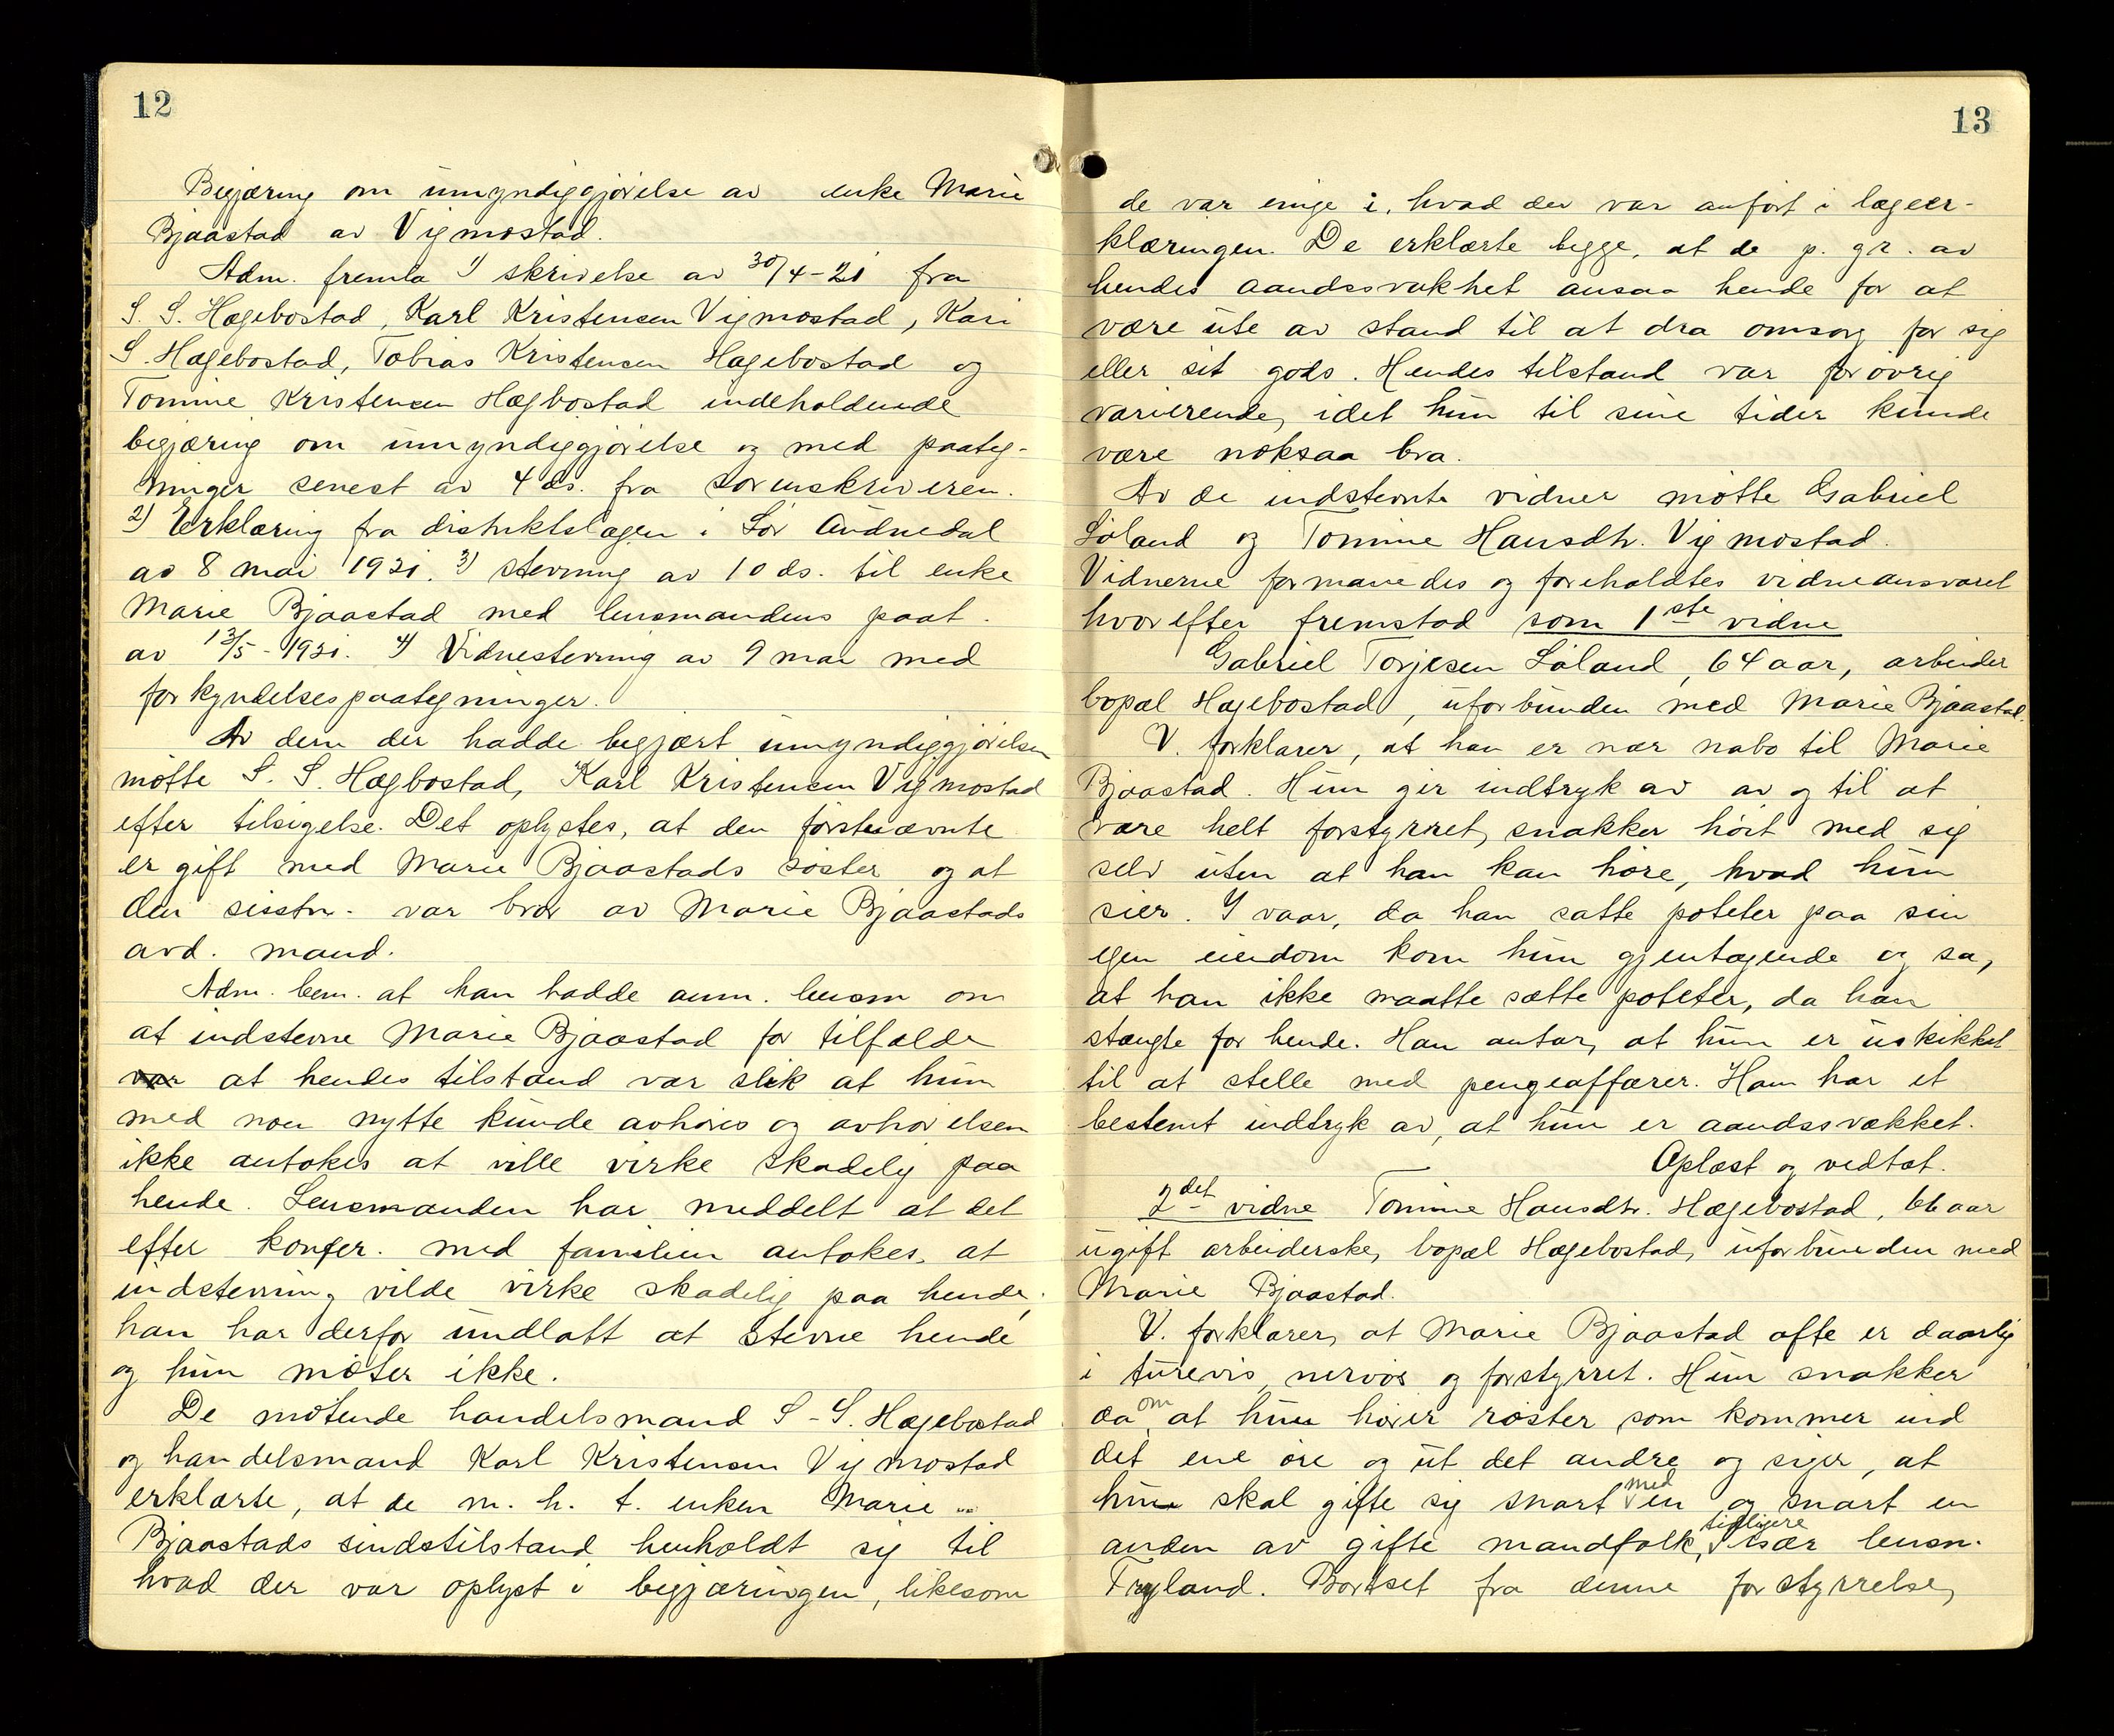 12
Begjæring om umyndiggjørelse av enke Marie
Bjaastad av Vigmostad.
Adm. fremla 1) skrivelse av 30/4-21 fra
S. S. Hægebostad, Karl Kristensen Vigmostad, Kari
S. Hægebostad, Tobias Kristensen Hægebostad og
Tomine Kristensen Hægbostad indeholdende
begjæring om umyndiggjørelse og med paateg-
ninger senest av 4 ds. fra sorenskriveren.
2) Erklæring fra distriktslægen i Sør Audnedal
av 8 mai 1921. 3) stevning av 10 ds. til enke
Marie Bjaastad med lensmandens paat.
av 13/5-1921. 4) Vidnestevning av 9 mai med
forkyndelsespaategninger.
Av dem der hadde begjært umyndiggjørelsen
møtte S. S. Hægbostad, Karl Kristensen Vigmostad
efter tilsigelse. Det oplystes, at den førstnævnte
er gift med Marie Bjaastads søster og at
den sisstn. var bror av Marie Bjaastads
avd. mand.
Adm. bem. at han hadde anm. lensm om
at indstevne Marie Bjaastad for tilfælde
var at hendes tilstand var slik at hun
med noen nytte kunde avhøres og avhørelsen
ikke antokes at ville virke skadelig paa
hende. Lensmanden har meddelt at det
efter konfer. med familien antokes, at
indstevning vilde virke skadelig paa hende;
han har derfor undlatt at stevne hende
og hun møter ikke.
De møtende handelsmand S-S. Hægebostad
og handelsmand Karl Kristensen Vigmostad
erklærte, at de m. h. t. enken Marie
Bjaastads sindstilstand henholdt sig til
hvad der var oplyst i begjæringen, likesom
13
de var enige i, hvad der var anført i lægeer-
klæringen. De erklærte begge, at de p. gr. av
hendes aandssvakhet ansaa hende for at
være ute av stand til at dra omsorg for sig
eller sit gods. Hendes tilstand var forøvrig
varierende, idet hun til sine tider kunde
være noksaa bra.
Av de indstevnte vidner møtte Gabriel
Løland og Tomine Hansdtr. Vigmostad.
Vidnerne formanedes og foreholdtes vidneansvaret
hvorefter fremstod som 1ste vidne
Gabriel Torjesen Løland, 64 aar, arbeider
bopæl Hægebostad, uforbunden med Marie Bjaastad.
V. forklarer, at han er nær nabo til Marie
Bjaastad. Hun gir indtryk av av og til at
være helt forstyrret, snakker høit med sig
selv uten at han kan høre, hvad hun
sier. I vaar, da han satte poteter paa sin
egen eiendom kom hun gjentagende og sa,
at han ikke maatte sætte poteter, da han
stængte for hende. Han antar, at hun er uskikket
til at stelle med pengeaffærer. Han har et
bestemt indtryk av, at hun er aandssvækket.
Oplæst og vedtat.
2det vidne Tomine Hansdtr. Hægebostad, 66 aar
ugift arbeiderske, bopæl Hægebostad, uforbunden med
Marie Bjaastad.
V. forklarer, at Marie Bjaastad ofte er daarlig
i turevis, nervøs og forstyrret. Hun snakker
da om at hun hører røster som kommer ind
det ene øre og ut det andre og siger, at
hun skal gifte sig snart med en og snart en
anden av gifte mandfolk, især tidligere lensm.
Tryland. Bortset fra denne forstyrrelse,